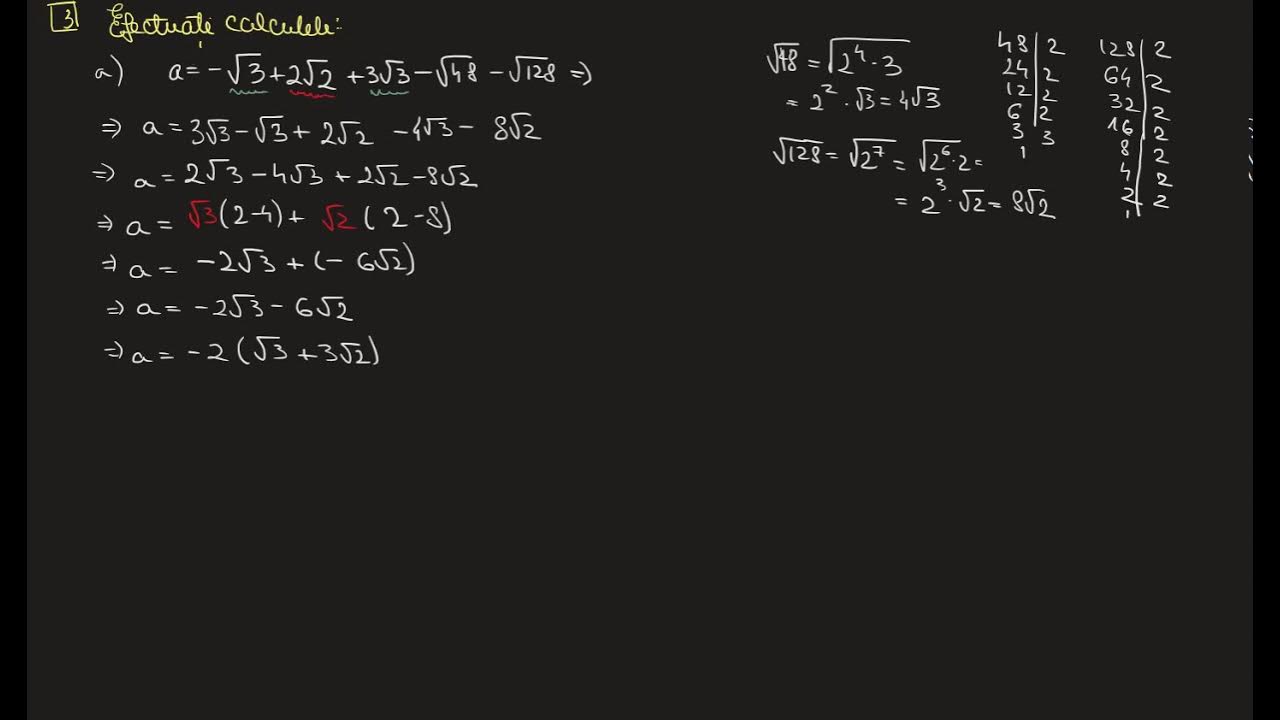 3 Efectuați calculele:
a) a = -√3 + 2√2 + 3√3 - √48 - √128 =>
=> a = 3√3 - √3 + 2√2 - 4√3 - 8√2
=> a = 2√3 - 4√3 + 2√2 - 8√2
=> a = √3(2-4) + √2(2-8)
=> a = -2√3 + (-6√2)
=> a = -2√3 - 6√2
=> a = -2(√3 + 3√2)
√48 = √2⁴·3
= 2²·√3 = 4√3
√128 = √2⁷ = √2⁶·2 =
= 2³·√2 = 8√2
48 | 2
24 | 2
12 | 2
6 | 2
3 | 3
1
128 | 2
64 | 2
32 | 2
16 | 2
8 | 2
4 | 2
2 | 2
1